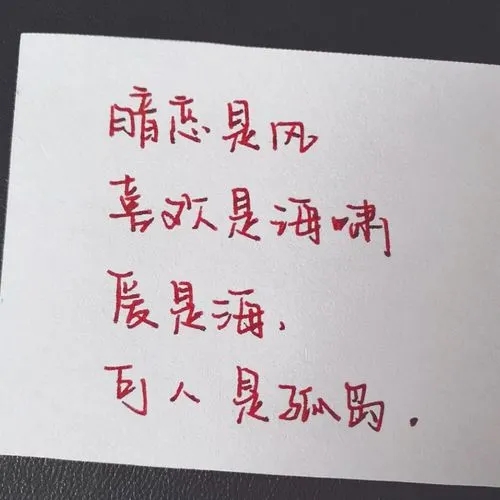 暗恋是风
喜欢是海啸
爱是海.
可人是孤岛.